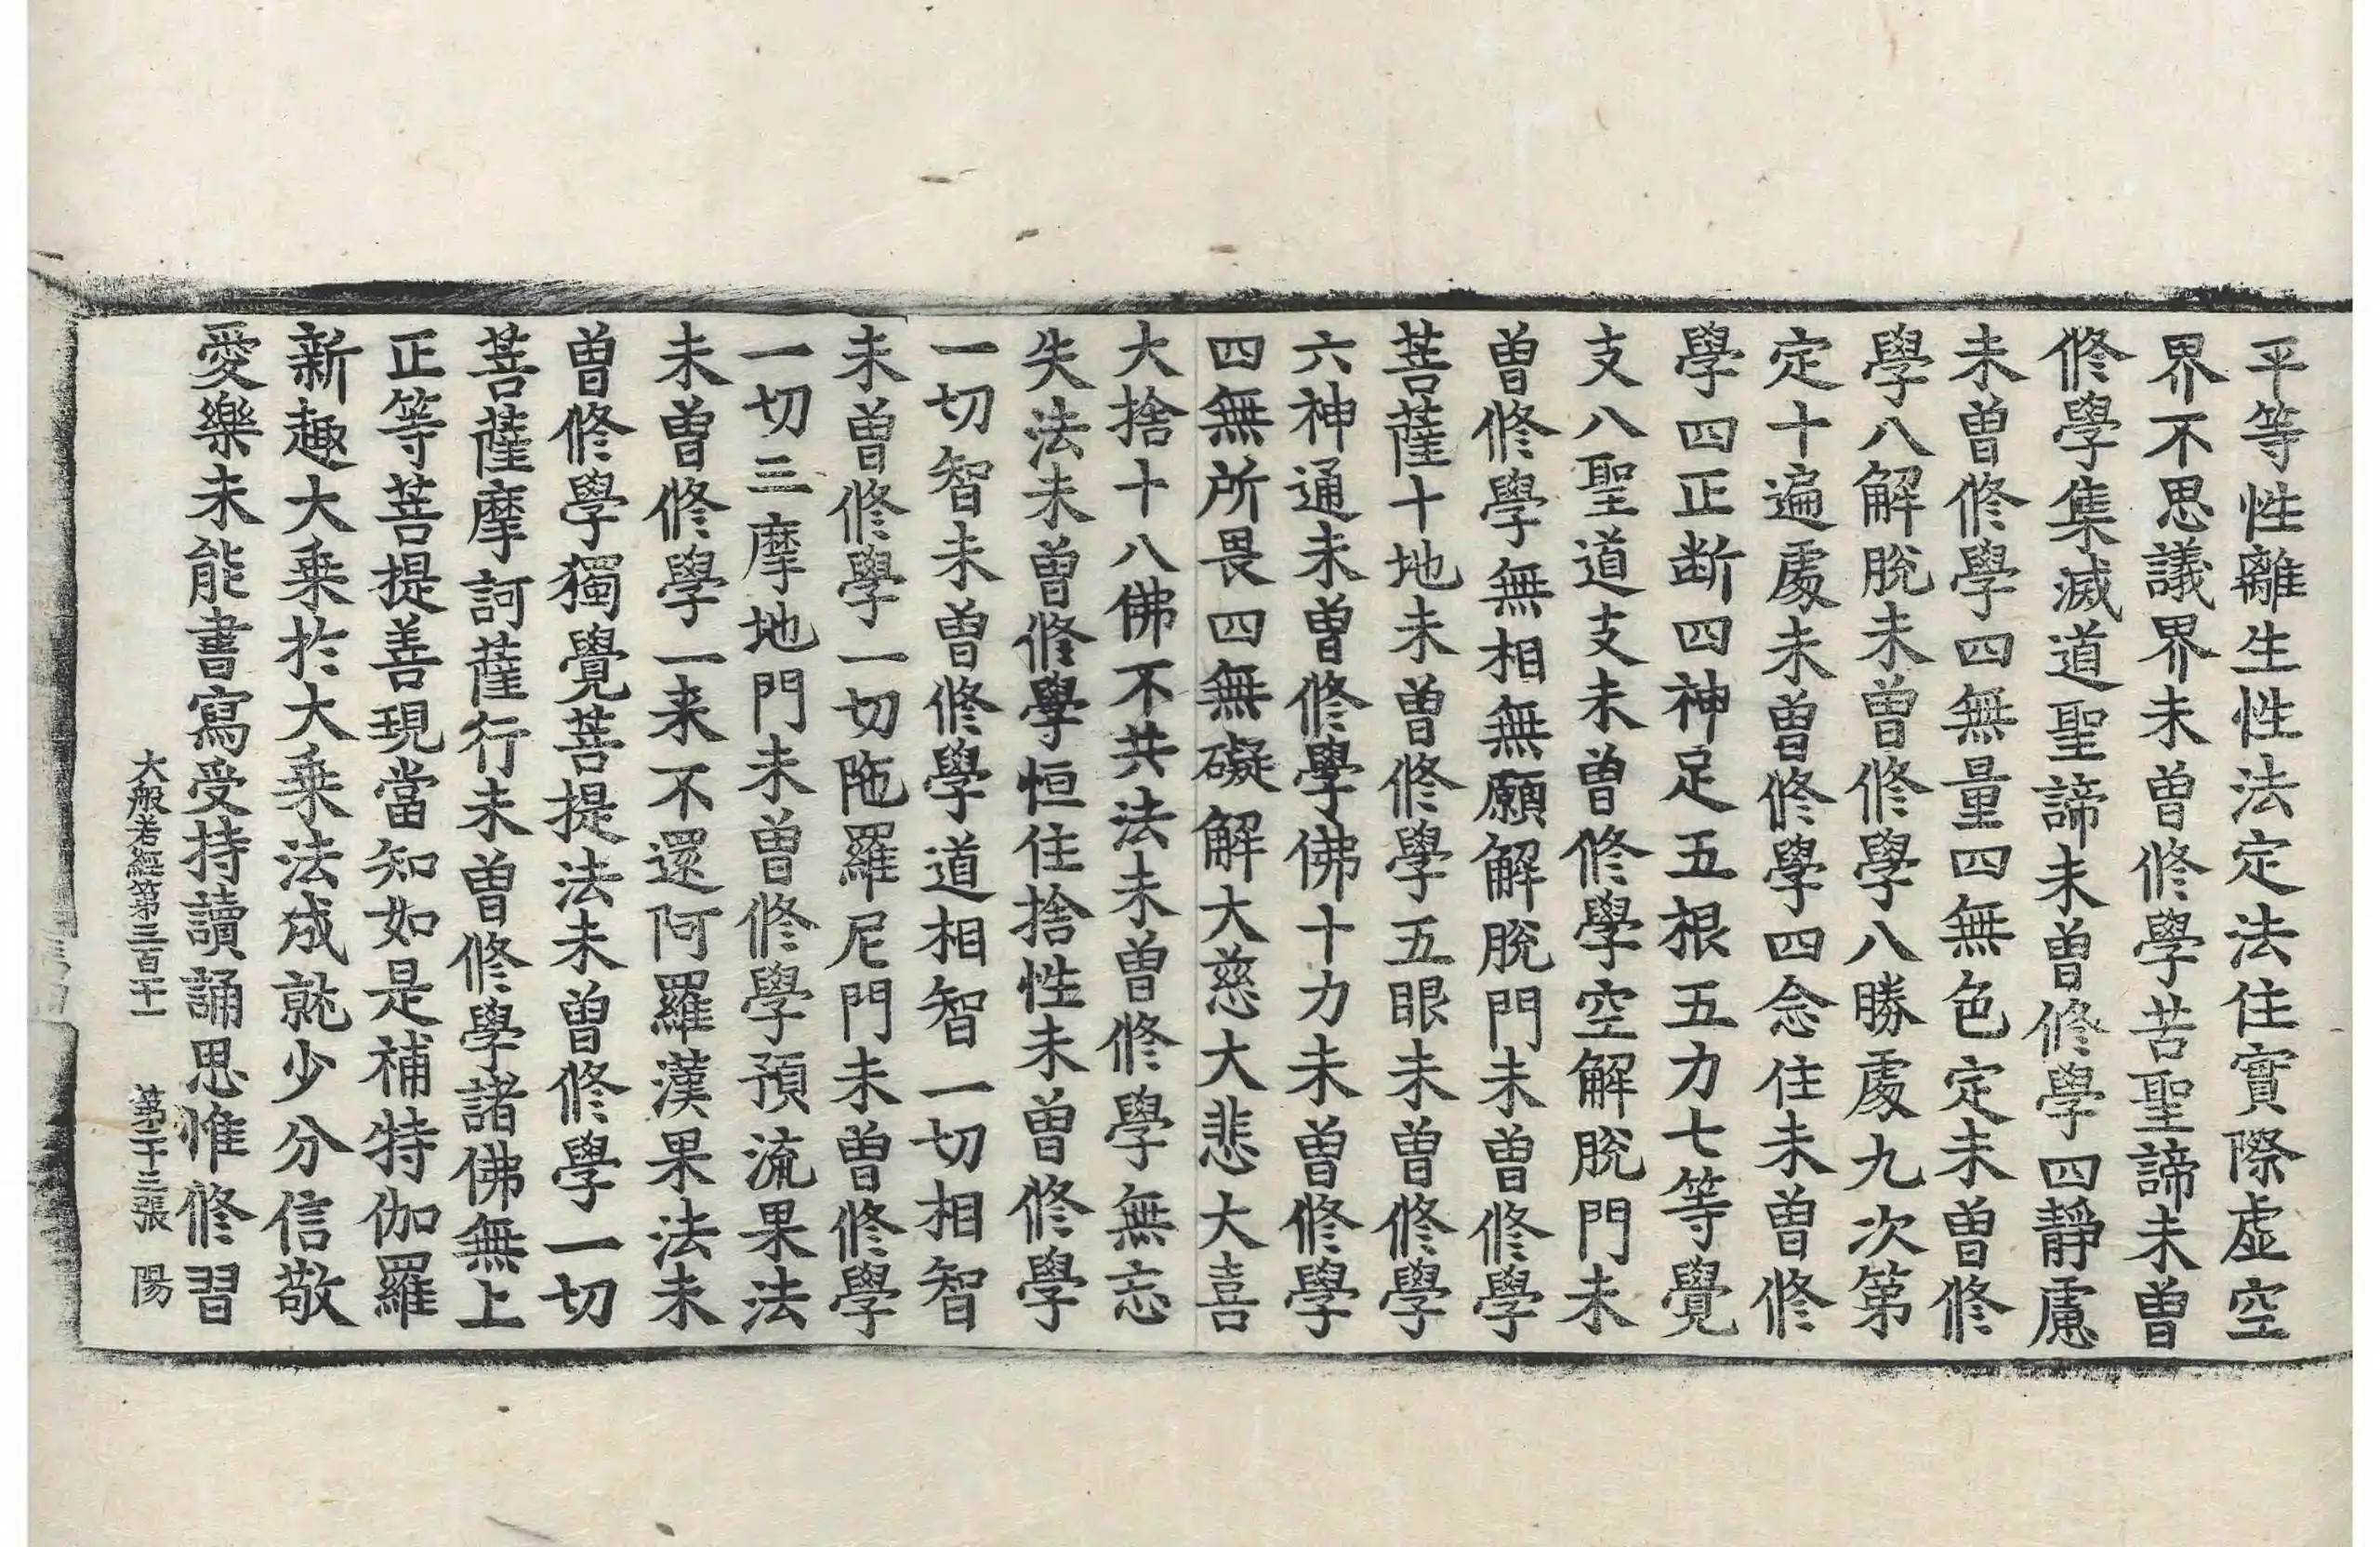 平等性離生性法定法住實際虛空
界不思議界未曾修學苦聖諦未曾
修學集滅道聖諦未曾修學四靜慮
未曾修學四無量四無色定未曾修
學八解脫未曾修學八勝處九次第
定十遍處未曾修學四念住未曾修
學四正断四神足五根五力七等覺
支八聖道支未曾修學空解脫門未
曾修學無相無願解脫門未曾修學
菩薩十地未曾修學五眼未曾修學
六神通未曾修學佛十力未曾修學
四無所畏四無礙解大慈大悲大喜
大捨十八佛不共法未曾修學無忘
失法未曾修學恒住捨性未曾修學
一切智未曾修學道相智一切相智
未曾修學一切陁羅尼門未曾修學
一切三摩地門未曾修學預流果法
未曾修學一来不還阿羅漢果法未
曾修學獨覺菩提法未曾修學一切
菩薩摩訶薩行未曾修學諸佛無上
正等菩提善現當知如是補特伽羅
新趣大乘於大乘法成就少分信敬
愛樂未能書寫受持讀誦思惟修習
大般若經第三百二十一 第二十三張 陽